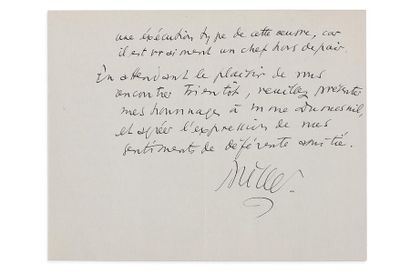 une exécution type de cette œuvre, car
il est vraiment un chef hors de pair.
En attendant le plaisir de nous
rencontrer bientôt, veuillez présenter
mes hommages à Mme Dumesnil,
et agréer l'expression de mes
sentiments de déférente amitié.